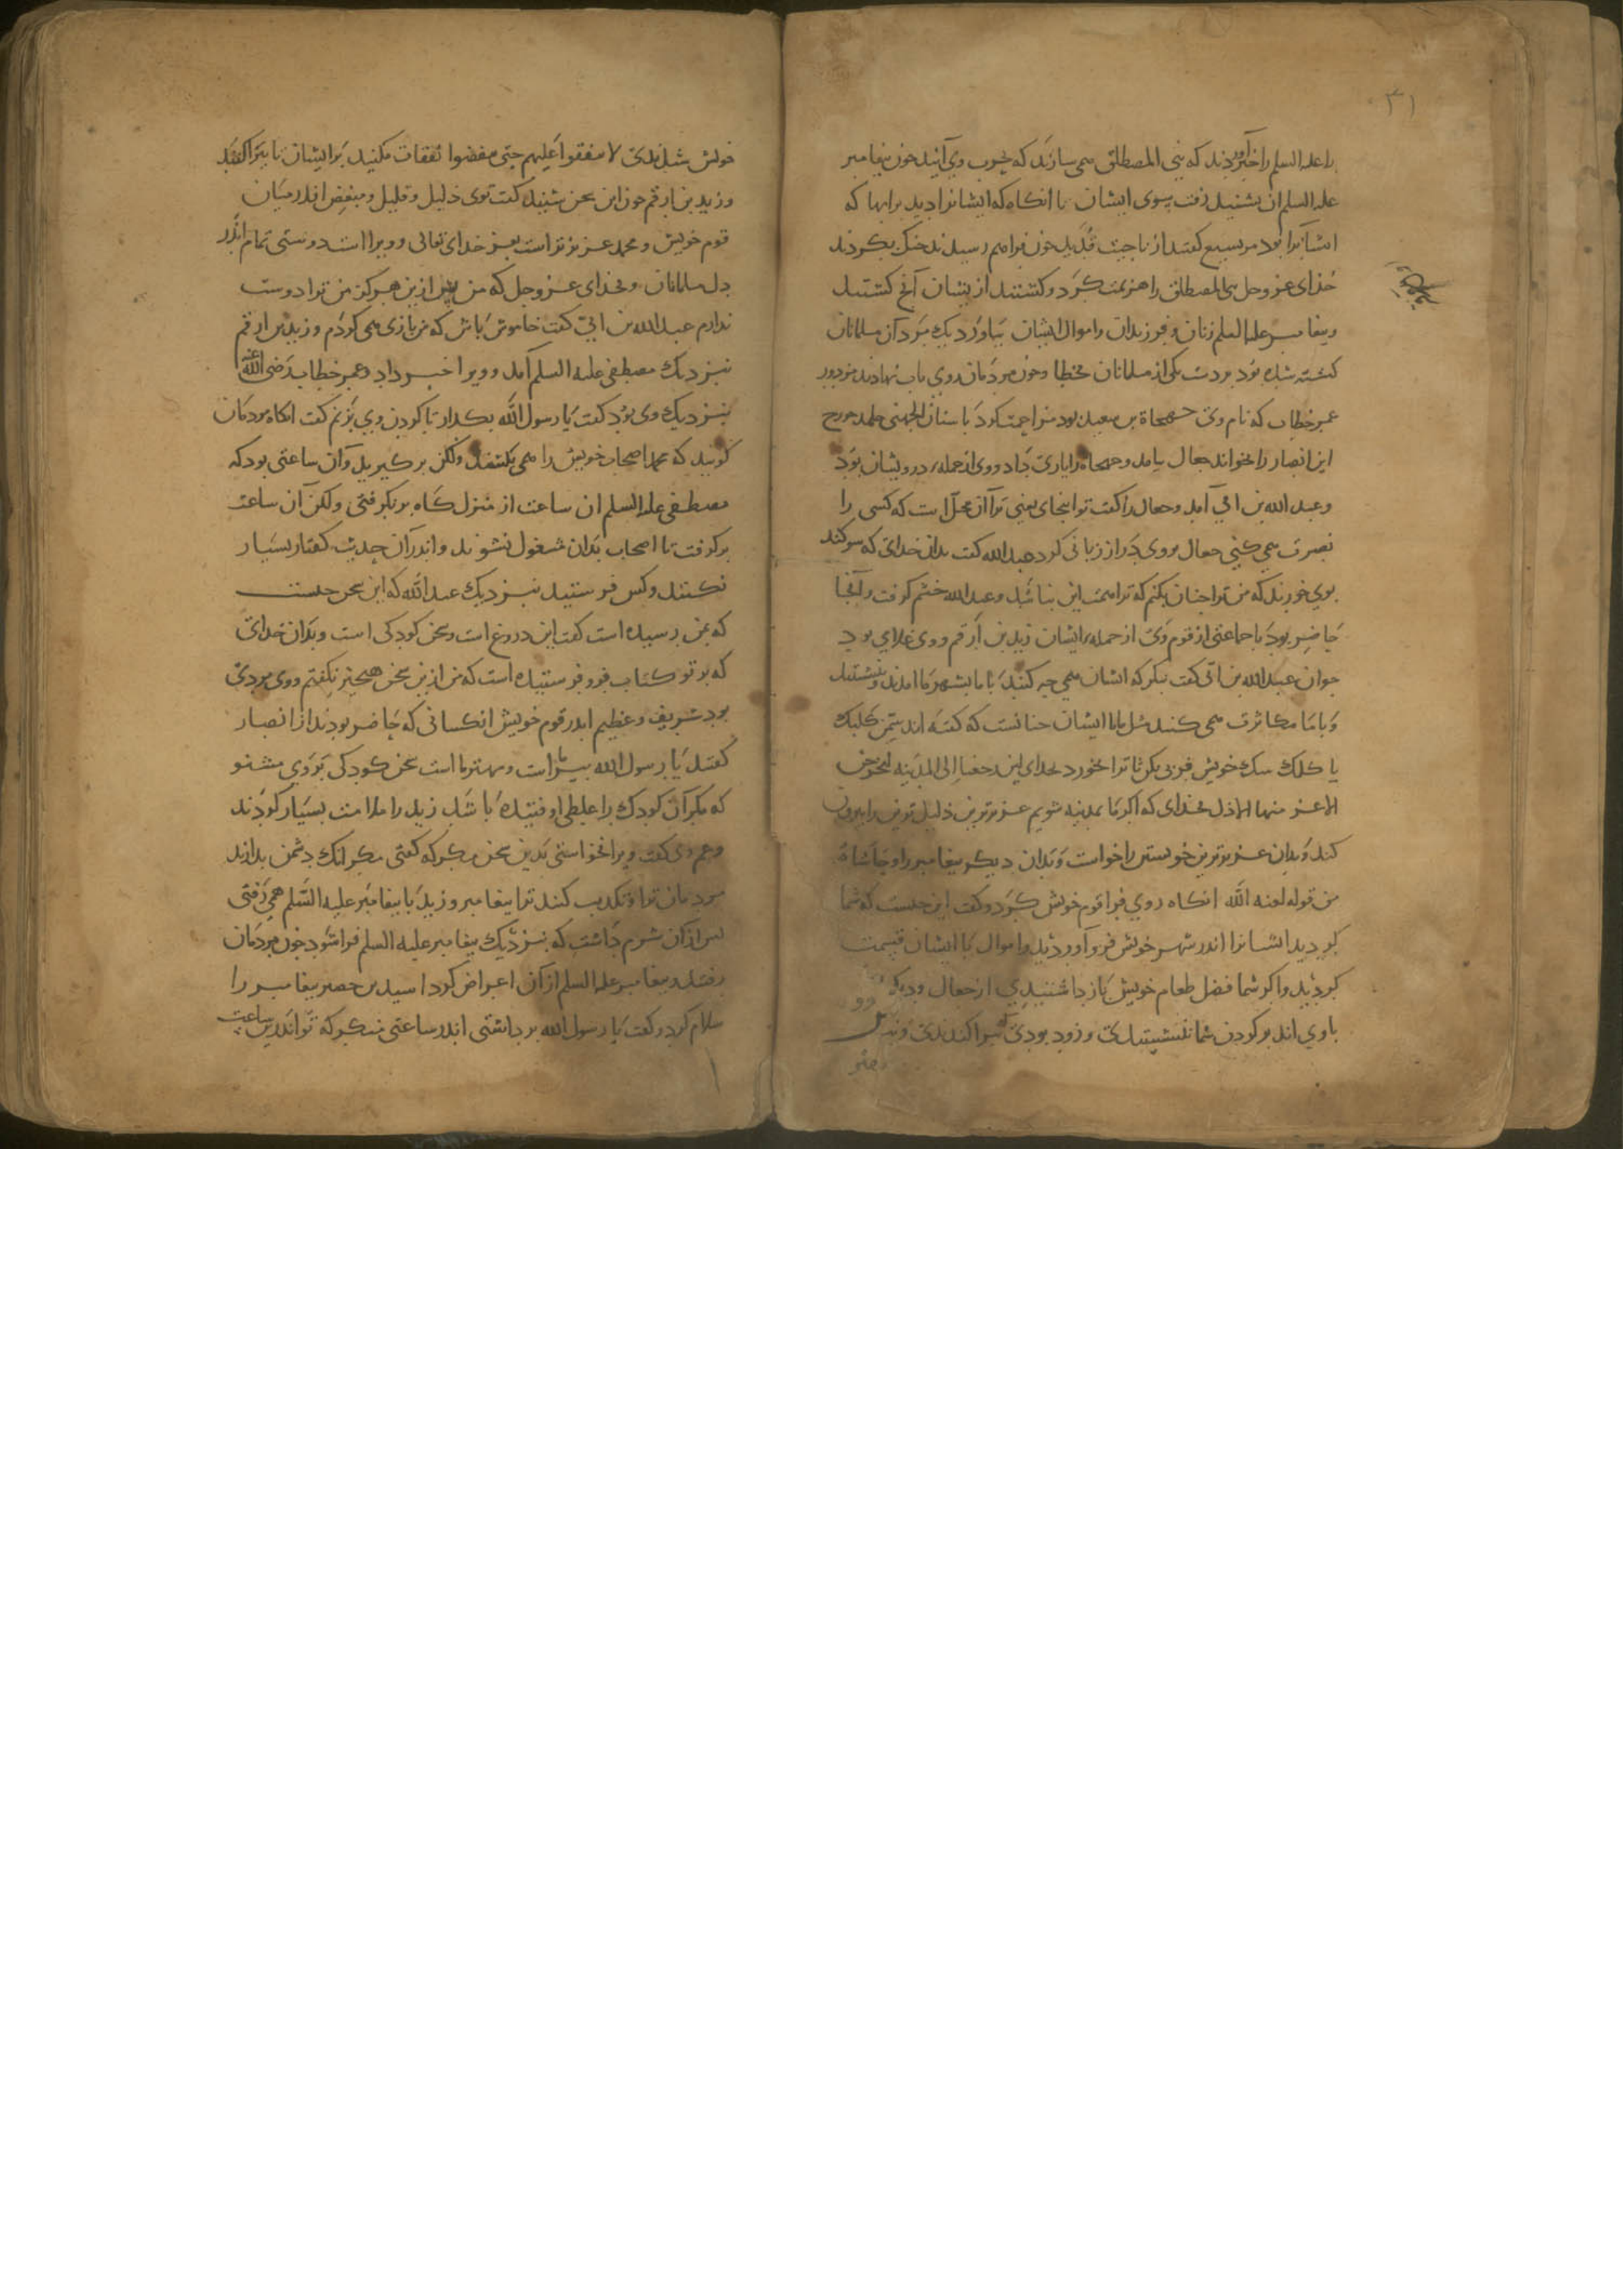 ۳۱
را علیه السلم را خبر آوردند که بنی المصطلق همی سازند که بحرب وی آیند چون پیغامبر
علیه السلم آن بشنید رفت بسوی ایشان تا آنکاه که ایشانرا دید برابها که
ایشانرا بود مریسیع گفتند از ناحیت قدید چون فراهم رسیدند جنک بکردند
خدای عز وجل بنی المصطلق را هزیمت کرد و کشتند از یشان آنچ کشتند
و پیغامبر علیه السلم زنان و فرزندان و اموال ایشان بیاورد یک مرد از آن مسلمانان
کشته شده بود بر دست یکی از مسلمانان بخطا و چون مردمان روی بآب نهادند مزدور
عمر خطاب که نام وی جهجاة بن سعید بود مزاحمت کرد با سنان الجهنی حلیف خزرج
این انصار را بخواند جعال بیامد و جهجاه را یاری داد و وی از جمله درویشان بود
و عبد الله بن ابی آمد و جعال را گفت تو اینجای یعنی ترا آن محل است که کسی را
نصرت همی کنی جعال بروی دراز زبانی کرد عبد الله گفت بدان خدای که سوکند
بوی خورند که من ترا چنان بکنم که ترا همت این نباشد و عبد الله خشم کرفت و آنجا
حاضر بود با جماعتی از قوم وی از جمله ایشان زید بن ارقم و وی غلامی بود
جوان عبد الله بن ابی گفت بنکر که ایشان همی چه کنند با ما بشهر ما آمدند و بنشستند
و با ما مکاثرت همی کنند مثل ما با ایشان چنانست که گفته اند سمن کلبک
یا کلک سک خویش فربی کن تا ترا بخورد بخدای لئن رجعنا الی المدینه لیخرجن
الاعز منها الاذل بخدای که اکر ما بمدینه شویم عزیزترین ذلیل ترین را بیرون
کند و بدان عزیزترین خویشتن را خواست و بدان دیکر پیغامبر را و حاشاه
من قوله لعنه الله آنکاه روی فرا قوم خویش کرد و گفت این چیست که شما
کردید ایشانرا اندر شهر خویش فرو آوردید و اموال با ایشان قسمت
کردید و اکر شما فضل طعام خویش باز داشتیدی از جعال و دیکر
باوی اند بر کردن شما ننشستندی و زود بودی که پراکندندی و نزد
خویش شدندی لا تنفقوا علیهم حتی ینفضوا نفقات مکنید بر ایشان تا بپراکنند
و زید بن ارقم چون این سخن شنید گفت توی ذلیل و قلیل و مبغض اندر میان
قوم خویش و محمد عزیزتر است بعز خدای تعالی و ویرا است دوستی تمام اندر
دل مسلمانان و بخدای عز وجل که من پس ازین هرکز من ترا دوست
ندارم عبد الله بن ابی گفت خاموش باش که من بازی همی کردم و زید بن ارقم
نزدیک مصطفی علیه السلم آمد و ویرا خبر داد و عمر خطاب رضی الله عنه
نزدیک وی بود گفت یا رسول الله بکذار تا کردن وی بزنم گفت آنکاه مردمان
کویند که محمد اصحاب خویش را همی بکشد ولکن برکیرید و آن ساعتی بود که
مصطفی علیه السلم ان ساعت از منزل کاه برنکرفتی ولکن آن ساعت
برکرفت تا اصحاب بدان مشغول نشوند و اندر آن حدیث گفتار بسیار
نکنند و کس فرستید نزدیک عبد الله که این سخن چیست
که بمن رسیده است گفت این دروغ است و سخن کودکی است و بدان خدای
که بر تو کتاب فرو فرستیده است که من ازین سخن هیچیز نکفتم و وی مردی
بود شریف و عظیم اندر قوم خویش آنکسانی که حاضر بودند از انصار
گفتند یا رسول الله پیر ما است و مهتر ما است سخن کودکی بر وی مشنو
که مکر آن کودک را غلطی اوفتیده باشد زید را ملامت بسیار کردند
و عم وی گفت ویرا نخواستی بدین سخن مکر که گفتی مکر آنک دشمن بدارند
مردمان ترا و تکذیب کند ترا پیغامبر و زید با پیغامبر علیه السلم همی رفتی
پس از آن شرم داشت که نزدیک پیغامبر علیه السلم فراشود چون مردمان
رفتند و پیغامبر علیه السلم از آن اعراض کرد اسید بن حضیر پیغامبر را
سلام کرد و گفت یا رسول الله برداشتی اندر ساعتی منکر که تو اندرین ساعت